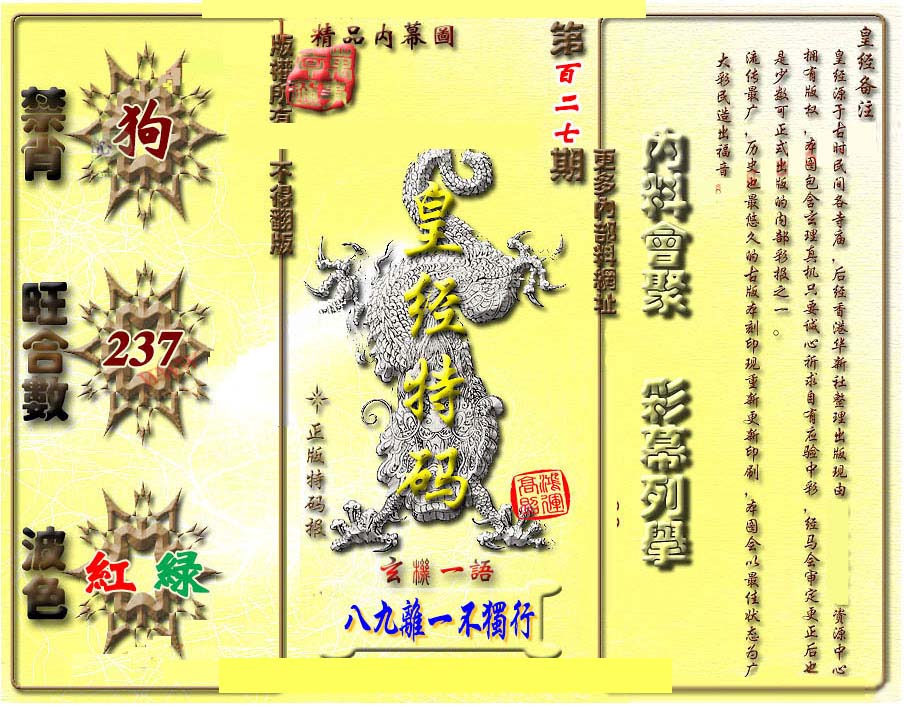 皇经备注
皇经源于古时民间各寺庙，后经香港华新社整理出版现由 资源中心
拥有版权，本图包含玄理真机只要诚心祈求自有应验中彩，经马会审定更正后也
是少数可正式出版的内部彩报之一。
流传最广，历史也最悠久的古版本刻印现重新更新印刷，本图会以最佳状态为广
大彩民造出福音
內料會聚
彩幕列舉
更多內部料網址
第百二七期
精品内幕圖
版權所有
不得翻版
皇经特码
正版特码报
鴻運高照
玄機一語
八九離一不獨行
禁肖
狗
旺合數
237
波色
紅 綠